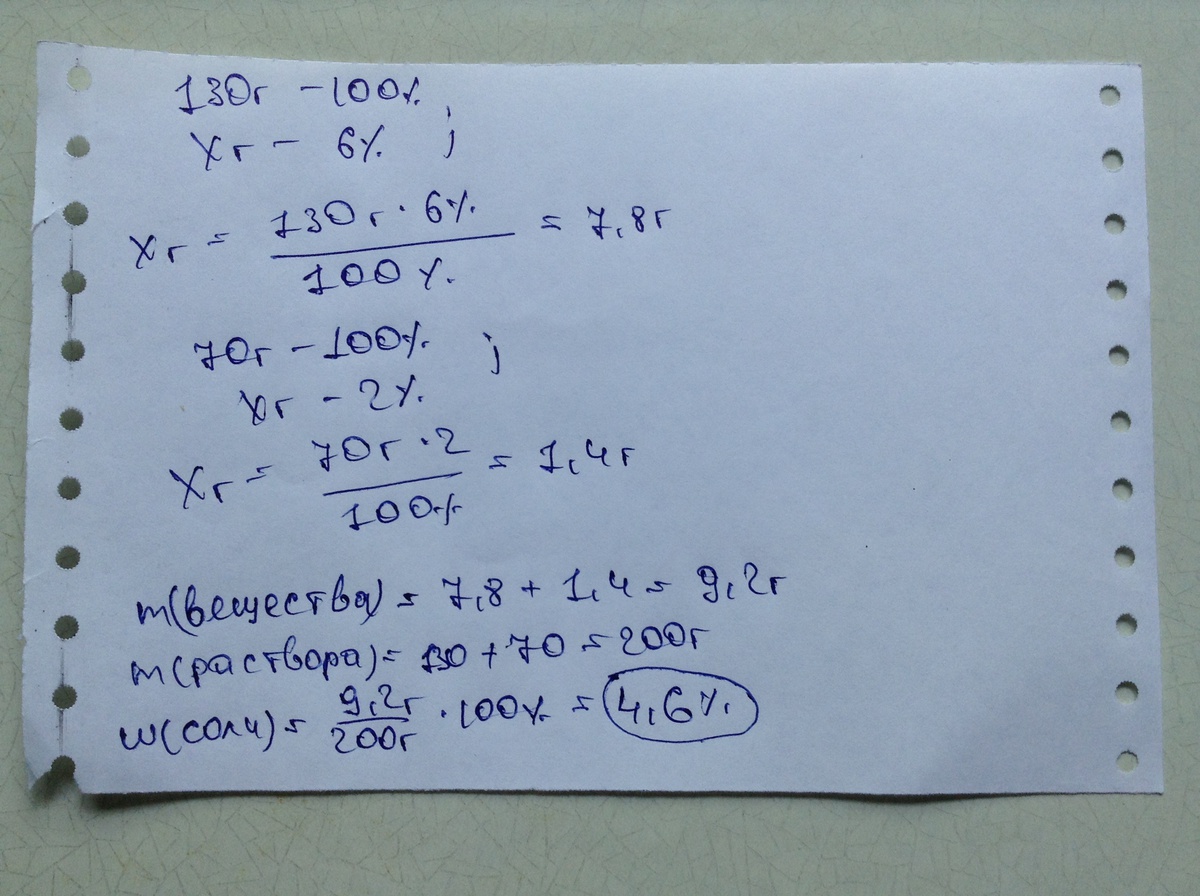 130г - 100%
xг - 6% ;
xг = 130г · 6% / 100% = 7,8г
70г - 100% ;
xг - 2%
xг = 70г · 2 / 100% = 1,4г
m(вещества) = 7,8 + 1,4 = 9,2г
m(раствора) = 130 + 70 = 200г
w(соли) = 9,2г / 200г · 100% = 4,6%